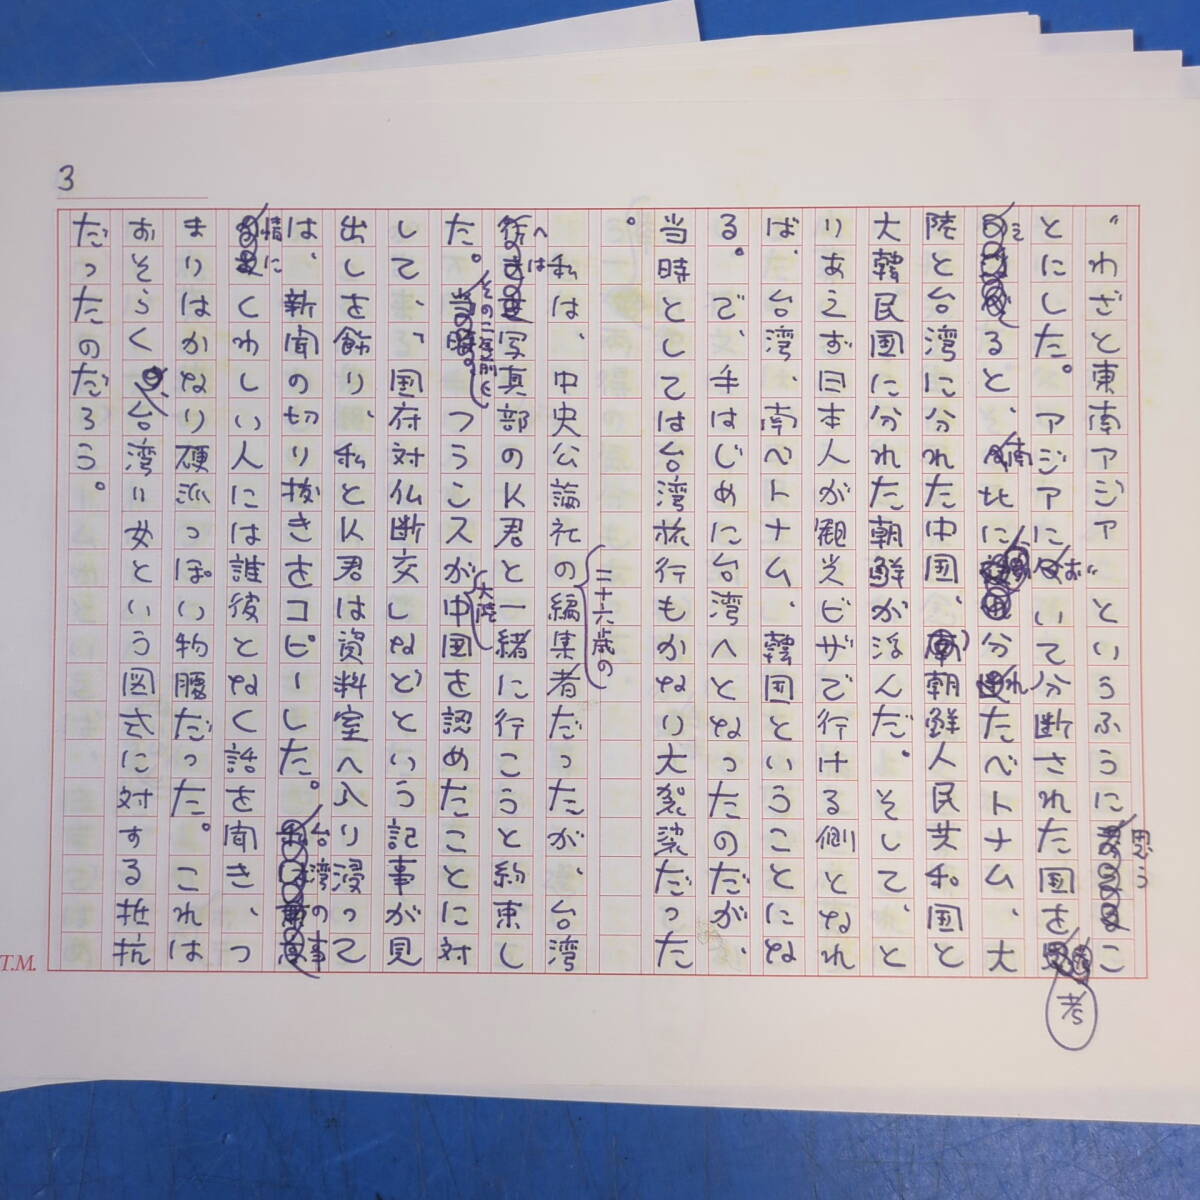 3
“わざと東南アジア”というふうに思うこ
とにした。アジアにおいて分断された国を考
えると、南北に分れたベトナム、大
陸と台湾に分れた中国、朝鮮人民共和国と
大韓民国に分れた朝鮮が浮んだ。そして、と
りあえず日本人が観光ビザで行ける側となれ
ば、台湾、南ベトナム、韓国ということにな
る。で、手はじめに台湾へとなったのだが、
当時としては台湾旅行もかなり大袈裟だった
。
私は、中央公論社の二十六歳の編集者だったが、台湾
へは写真部のK君と一緒に行こうと約束し
た。その二年前くつうこスが大陸中国を認めたことに対
して、「国府対仏断交」などという記事が見
出しを飾り、私とK君は資料室へ入り浸って
は、新聞の切り抜きをコピーした。台湾の事
情にくわしい人には誰彼となく話を聞き、つ
まりはかなり硬派っぽい物腰だった。これは
おそらく、台湾＝女という図式に対する抵抗
だったのだろう。
T.M.